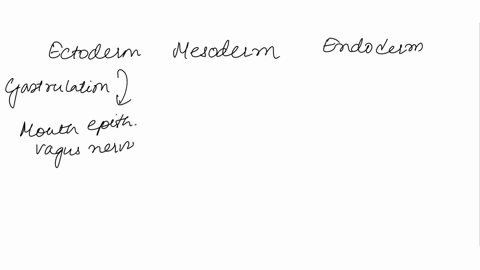 Ectoderm Mesoderm Endoderm
Gastrulation
Mouth epith.
vagus nerv